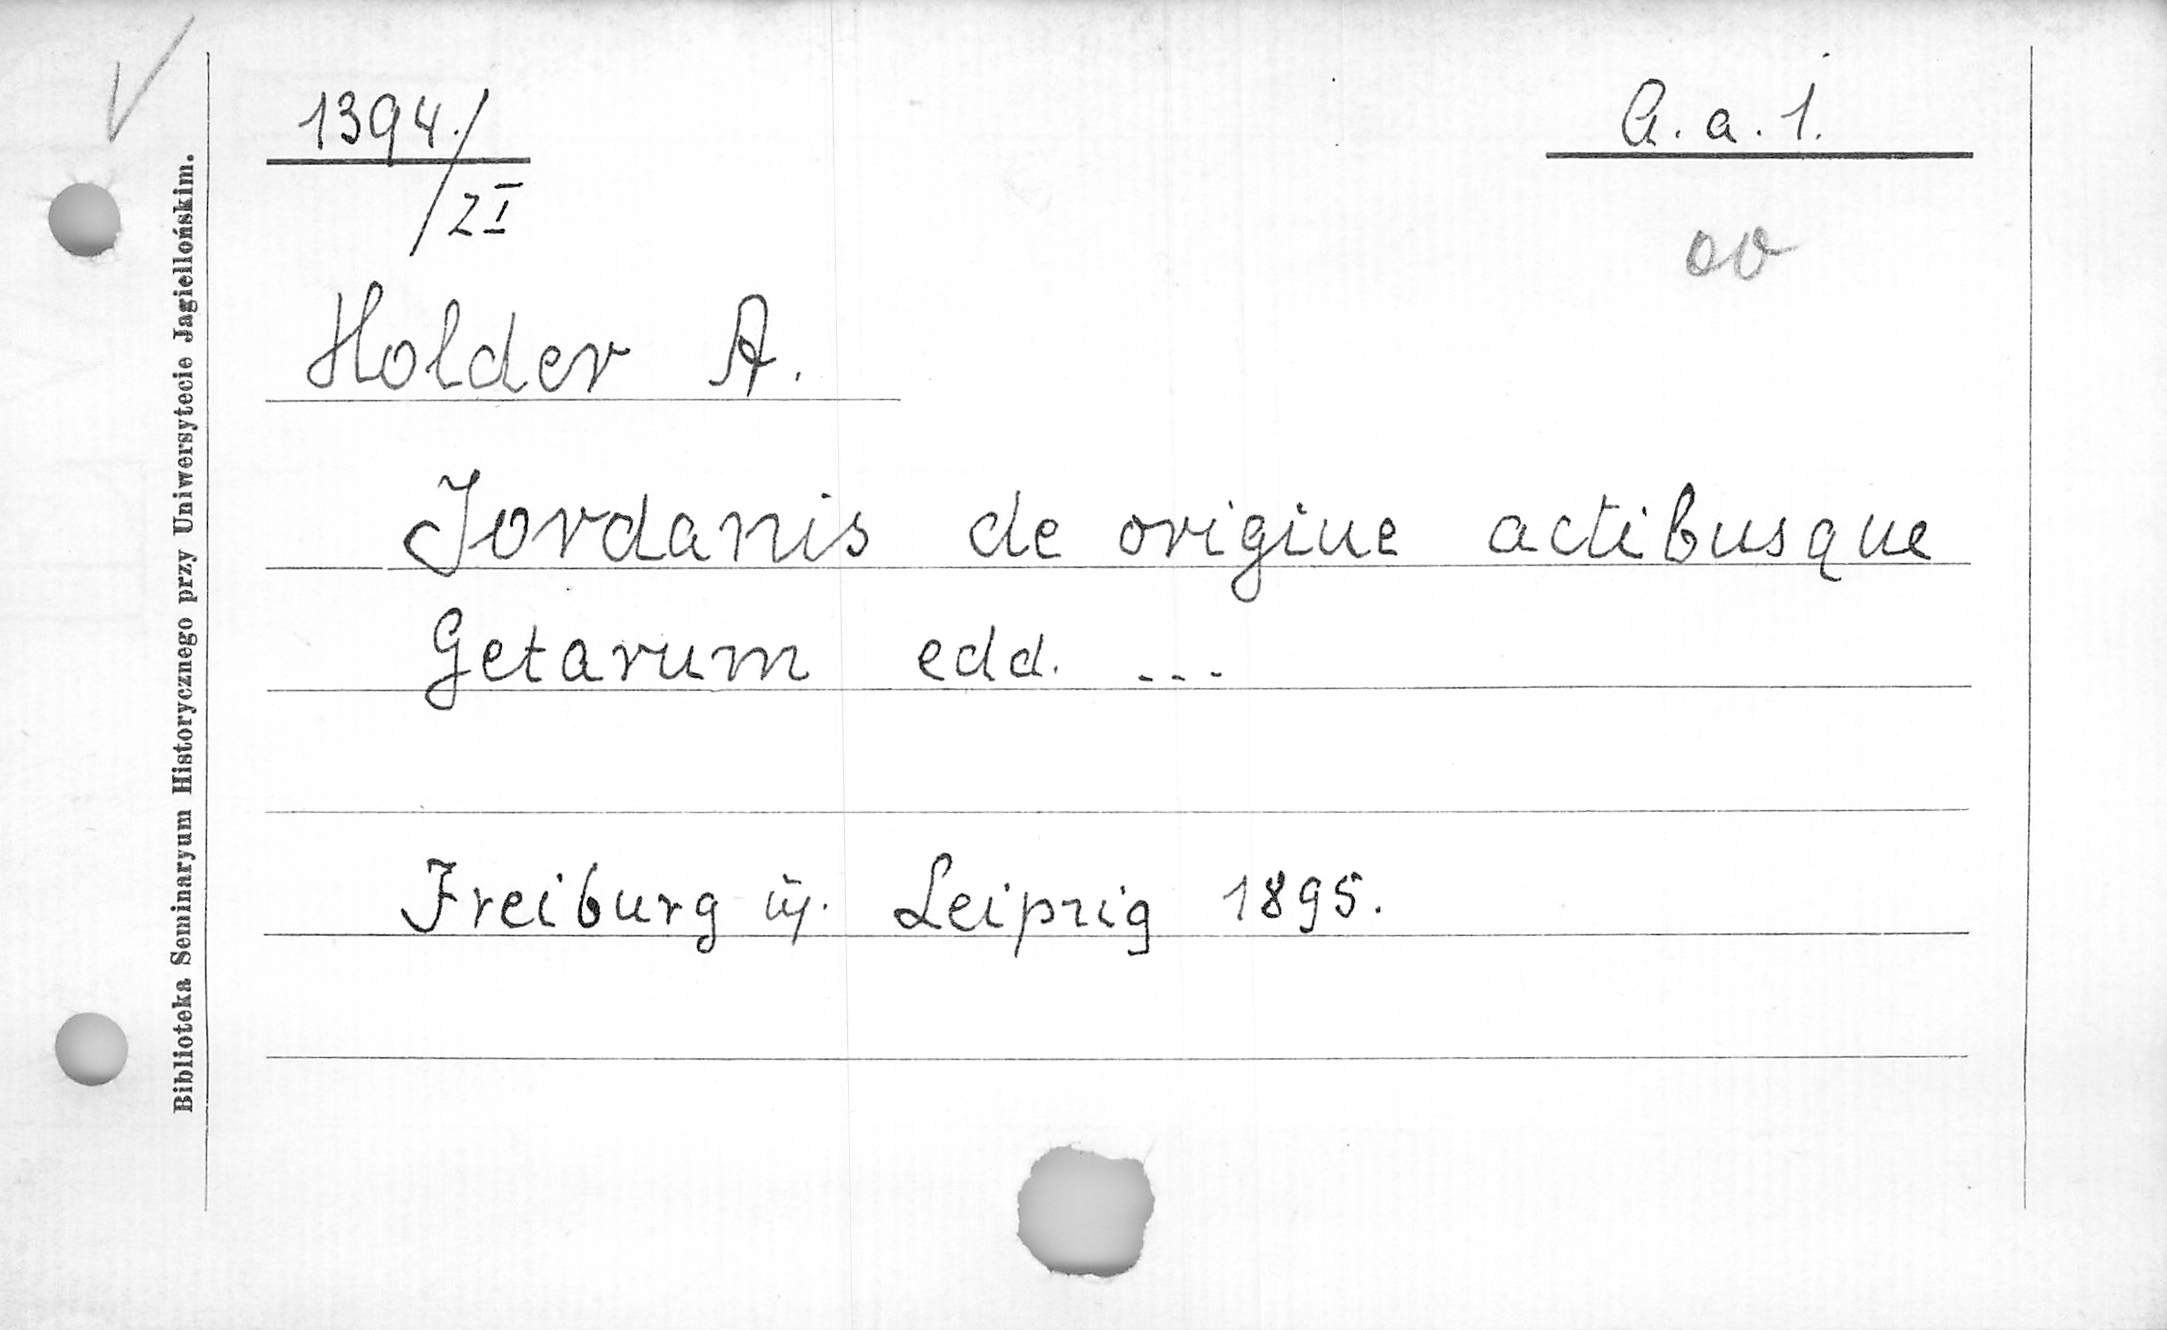 1394./ZI
G. a. 1.
Holder A.
Jordanis de origine actibusque
Getarum edd. ...
Freiburg Leipzig 1895.
Biblioteka Seminaryum Historycznego przy Uniwersytecie Jagiellońskim.